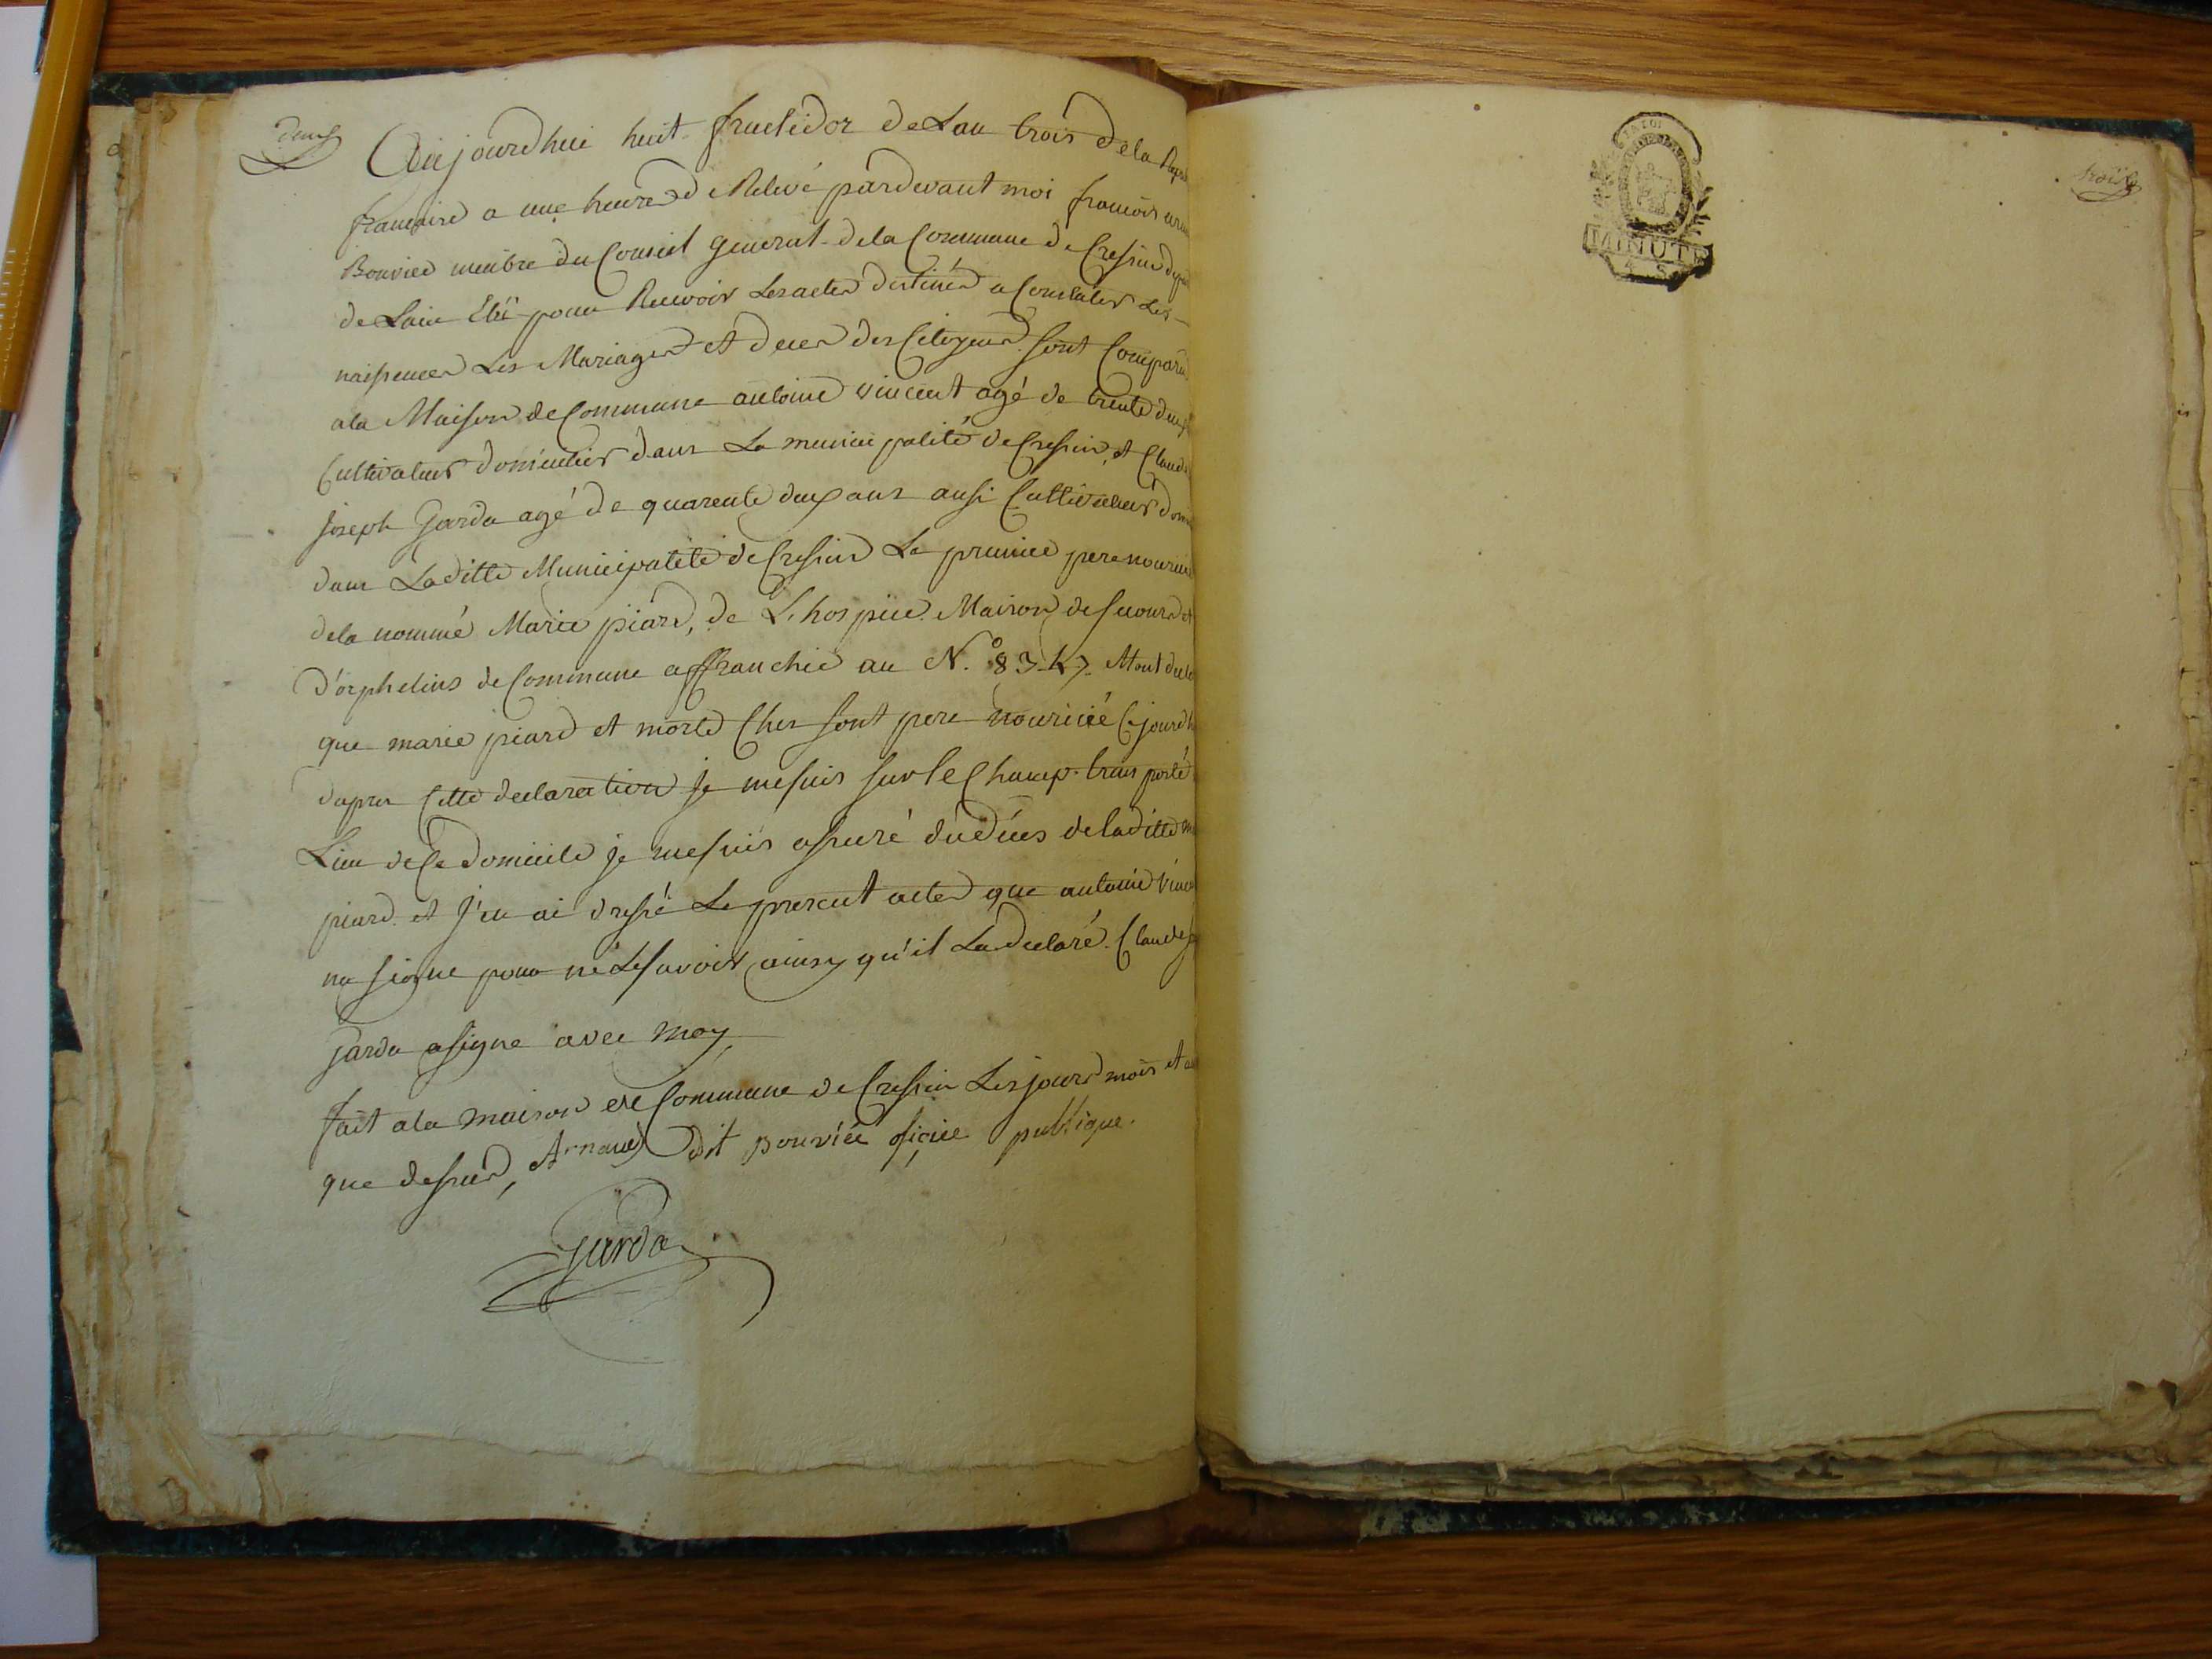 deux
Aujourdhui huit fructidor de Lan trois dela
francaise a une heure de Relevé pardevant moi francois
Bouvier membre du Conseil general dela Commune de Cressin
de Lain Elü pour Recevoir Les actes destinés a Constater Les
naissences Les Mariages et deces des Citoyens Sont Comparu
ala Maison de Commune antoine vincent agé de trente deux
Cultivateur domicilier dans La municipalité de Cressin, et Claude
joseph Garda agé de quarente deux ans ausi Cultivateur
dans Laditte Municipalité de Cressin Le premier pere nouricié
dela nommé Marie piard, de L'hospice Maison de Secours et
D'orphelins de Commune affranchie au N.º 8347
que marie piard et morte Ches sont pere nouricié
dapres Cette declaration je me suis sur le Champ transporté
Lieu de Ce domicile je me suis assuré du dècés de laditte
piard et j'en ai dressé Le present acte que antoine
na signe pour ne Le savoir ainsy qu'il La declaré. Claude
garda a signe avec moy
fait ala maison de Commune de Cressin Les jours mois et
que dessus, Arnaud Dit Bouvier oficie publique.
garda
MINUTE
trois